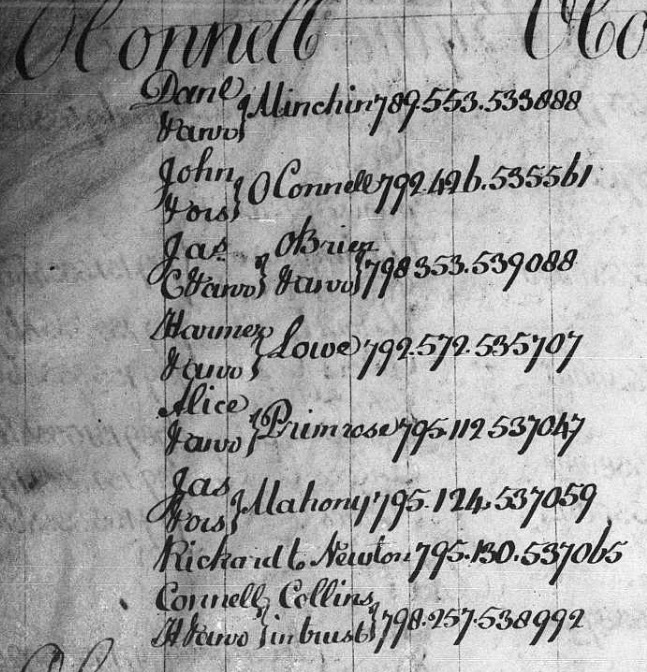 OConnell OCo
Danl
& anr } Minchin 789.553.533888
John
& ors } OConnell 792.426.535561
Jas OBrien
& anr } & anr } 798 353.539088
Harmer
& anr } Lowe 792.572.535707
Alice
& anr } Primrose 795.112.537047
Jas
& ors } Mahony 795.124.537059
Richard to Newton 795.130.537065
Connell Collins
& anr } in trust } 798.257.538992